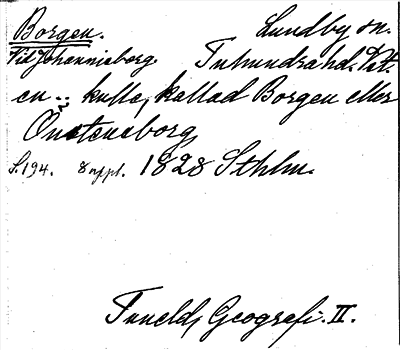 Borgen. Lundby sn.
Vid Johannisberg. Tuhundra hd. Vst.
en .. kulle, kallad Borgen eller
Onstensborg
S. 194. 8 uppl. 1828 Sthlm.
Tuneld, Geografi. II.